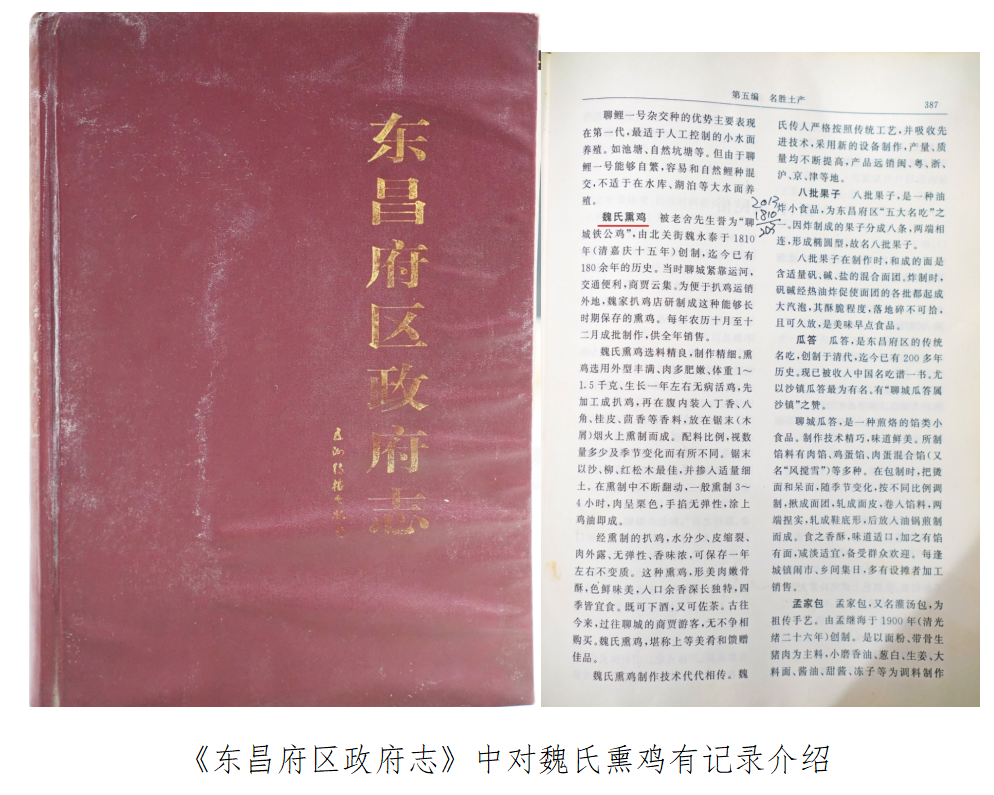 东昌府区政府志
第五编 名胜土产
387
聊鲤一号杂交种的优势主要表现
在第一代，最适于人工控制的小水面
养殖。如池塘、自然坑塘等。但由于聊
鲤一号能够自繁，容易和自然鲤种混
交，不适于在水库、湖泊等大水面养
殖。
魏氏熏鸡 被老舍先生誉为“聊
城铁公鸡”，由北关街魏永泰于1810
年（清嘉庆十五年）创制，迄今已有
180余年的历史。当时聊城紧靠运河，
交通便利，商贾云集。为便于扒鸡运销
外地，魏家扒鸡店研制成这种能够长
时期保存的熏鸡。每年农历十月至十
二月成批制作，供全年销售。
魏氏熏鸡选料精良，制作精细。熏
鸡选用外型丰满、肉多肥嫩、体重1～
1.5千克、生长一年左右无病活鸡，先
加工成扒鸡，再在腹内装人丁香、八
角、桂皮、茴香等香料，放在锯末（木
屑）烟火上熏制而成。配料比例，视数
量多少及季节变化而有所不同。锯末
以沙、柳、红松木最佳，并掺入适量细
土。在熏制中不断翻动，一般熏制3～
4小时，肉呈栗色，手掐无弹性，涂上
鸡油即成。
经熏制的扒鸡，水分少、皮缩裂、
肉外露、无弹性、香味浓，可保存一年
左右不变质。这种熏鸡，形美肉嫩骨
酥，色鲜味美，入口余香深长独特，四
季皆宜食。既可下酒，又可佐茶。古往
今来，过往聊城的商贾游客，无不争相
购买。魏氏熏鸡，堪称上等美肴和馈赠
佳品。
魏氏熏鸡制作技术代代相传。魏
2013
1810
203
氏传人严格按照传统工艺，并吸收先
进技术，采用新的设备制作，产量、质
量均不断提高，产品远销闽、粤、浙、
沪、京、津等地。
八批果子 八批果子，是一种油
炸小食品，为东昌府区“五大名吃”之
一。因炸制成的果子分成八条，两端相
连，形成椭圆型，故名八批果子。
八批果子在制作时，和成的面是
含适量矾、碱、盐的混合面团。炸制时，
矾碱经热油炸促使面团的各批都起成
大汽泡，其酥脆程度，落地碎不可拾，
且可久放，是美味早点食品。
瓜答 瓜答，是东昌府区的传统
名吃，创制于清代，迄今已有200多年
历史。现已被收入中国名吃谱一书。尤
以沙镇瓜答最为有名。有“聊城瓜答属
沙镇”之赞。
聊城瓜答，是一种煎烙的馅类小
食品。制作技术精巧，味道鲜美。所制
馅料有肉馅、鸡蛋馅、肉蛋混合馅（又
名“风搅雪”）等多种。在包制时，把烫
面和呆面，随季节变化，按不同比例调
制，揪成面团，轧成面皮，卷入馅料，两
端捏实，轧成鞋底形，后放入油锅煎制
而成。食之香酥，味道适口，加之有馅
有面，咸淡适宜，备受群众欢迎。每逢
城镇闹市、乡间集日，多有设摊者加工
销售。
孟家包 孟家包，又名灌汤包，为
祖传手艺。由孟继海于1900年（清光
绪二十六年）创制。是以面粉、带骨生
猪肉为主料，小磨香油、葱白、生姜、大
料面、酱油、甜酱、冻子等为调料制作
《东昌府区政府志》中对魏氏熏鸡有记录介绍